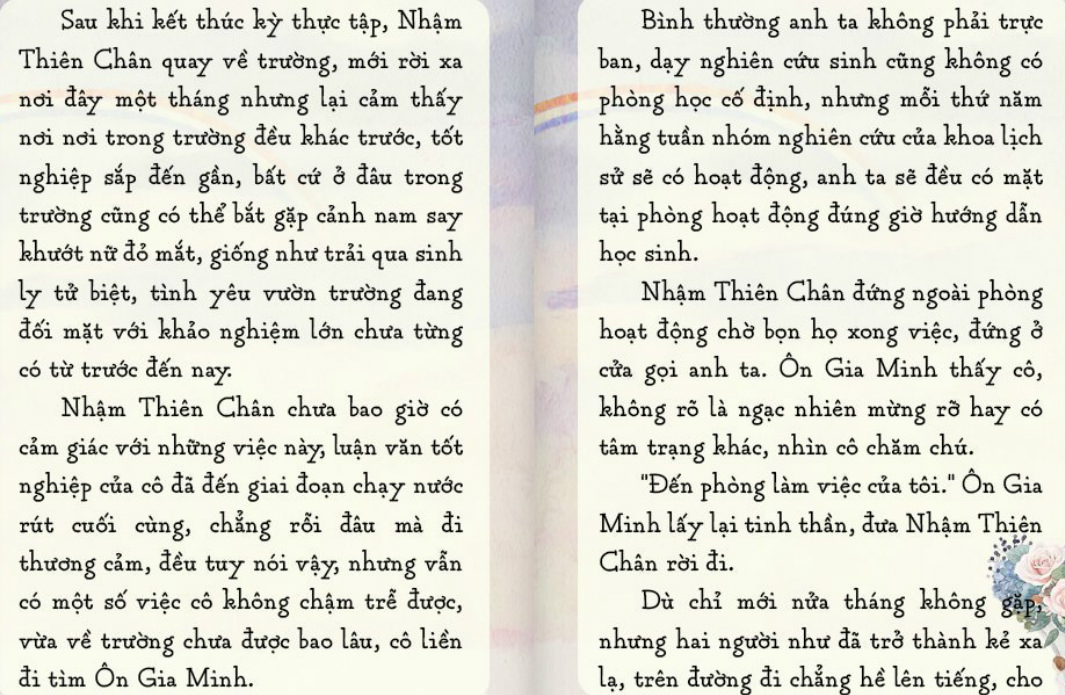 Sau khi kết thúc kỳ thực tập, Nhậm
Thiên Chân quay về trường, mới rời xa
nơi đây một tháng nhưng lại cảm thấy
nơi nơi trong trường đều khác trước, tốt
nghiệp sắp đến gần, bất cứ ở đâu trong
trường cũng có thể bắt gặp cảnh nam say
khướt nữ đỏ mắt, giống như trải qua sinh
ly tử biệt, tình yêu vườn trường đang
đối mặt với khảo nghiệm lớn chưa từng
có từ trước đến nay.
Nhậm Thiên Chân chưa bao giờ có
cảm giác với những việc này, luận văn tốt
nghiệp của cô đã đến giai đoạn chạy nước
rút cuối cùng, chẳng rỗi đâu mà đi
thương cảm, đều tuy nói vậy, nhưng vẫn
có một số việc cô không chậm trễ được,
vừa về trường chưa được bao lâu, cô liền
đi tìm Ôn Gia Minh.
Bình thường anh ta không phải trực
ban, dạy nghiên cứu sinh cũng không có
phòng học cố định, nhưng mỗi thứ năm
hằng tuần nhóm nghiên cứu của khoa lịch
sử sẽ có hoạt động, anh ta sẽ đều có mặt
tại phòng hoạt động đúng giờ hướng dẫn
học sinh.
Nhậm Thiên Chân đứng ngoài phòng
hoạt động chờ bọn họ xong việc, đứng ở
cửa gọi anh ta. Ôn Gia Minh thấy cô,
không rõ là ngạc nhiên mừng rỡ hay có
tâm trạng khác, nhìn cô chăm chú.
"Đến phòng làm việc của tôi." Ôn Gia
Minh lấy lại tinh thần, đưa Nhậm Thiên
Chân rời đi.
Dù chỉ mới nửa tháng không gặp,
nhưng hai người như đã trở thành kẻ xa
lạ, trên đường đi chẳng hề lên tiếng, cho